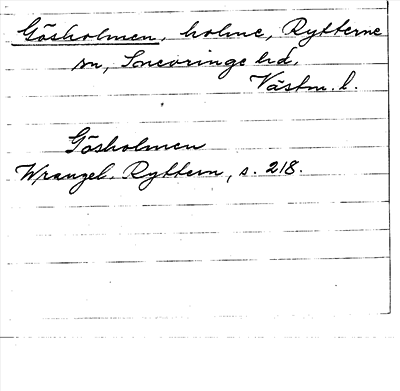 Gåsholmen, holme, Rytterne
sn, Snevringe hd.
Västm. l.
Gåsholmen
Wrangel. Ryttern, s. 218.